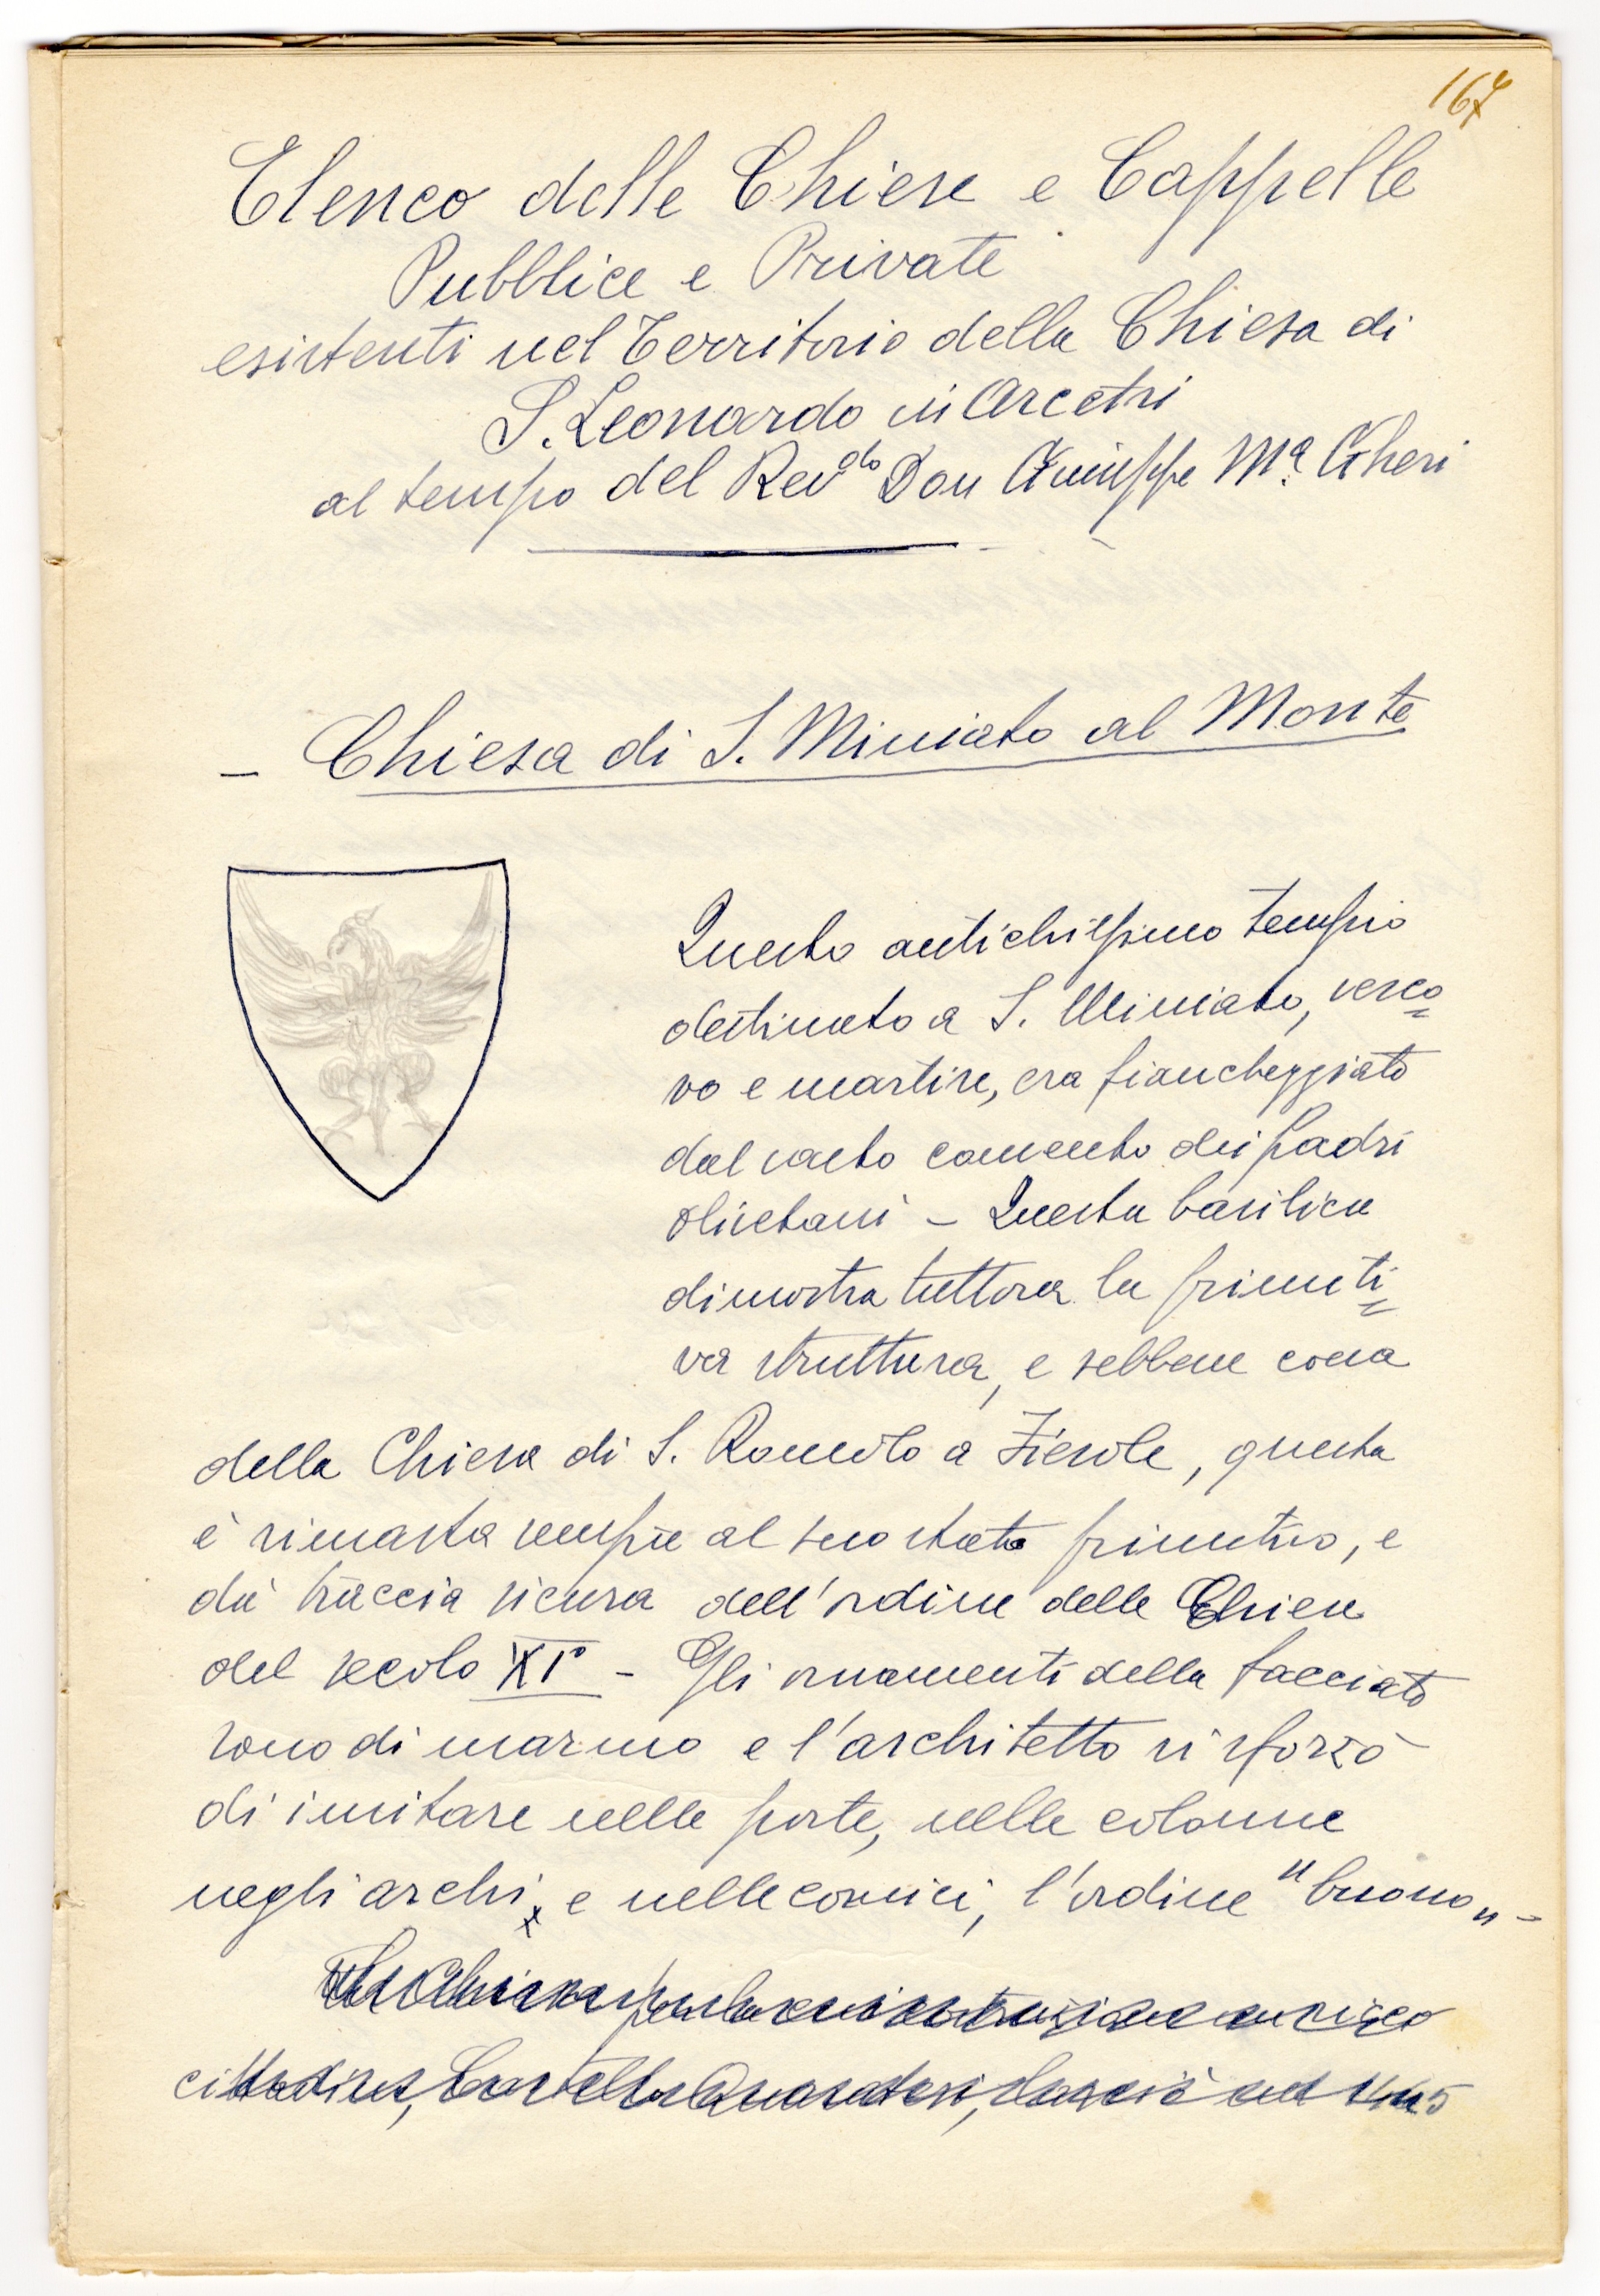 167
Elenco delle Chiese e Cappelle
Pubblice e Private
esistenti nel Territorio della Chiesa di
S. Leonardo in Arcetri
al tempo del Rev.do Don Giuseppe Ma. Gheri
– Chiesa di S. Miniato al Monte
Questo antichissimo tempio
destinato a S. Miniato, vesco=
vo e martire, era fiancheggiato
dal vasto convento dei padri
olivetani – Questa basilica
dimostra tuttora la primiti=
va struttura, e sebbene coeva
della Chiesa di S. Romolo a Fiesole, questa
è rimasta sempre al suo stato primitivo, e
dà traccia sicura dell'ordine delle Chiese
del secolo XI° – Gli ornamenti della facciata
sono di marmo e l'architetto si sforzò
di imitare nelle porte, nelle colonne
negli archi, e nelle cornici, l'ordine "buono" –
per la cui costruzione un ricco
cittadino, Castello Quaratesi, lasciò nel 1445